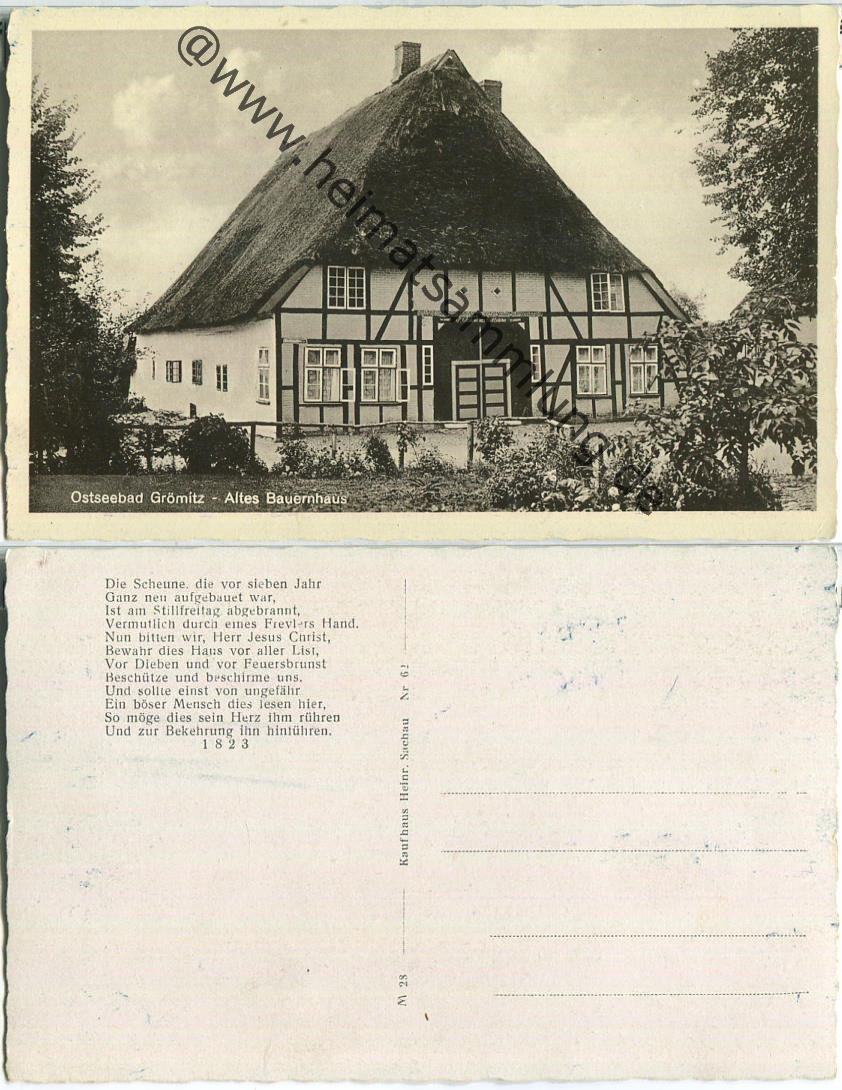 @www.heimatsammlung.de
Ostseebad Grömitz - Altes Bauernhaus
Die Scheune, die vor sieben Jahr
Ganz neu aufgebauet war,
Ist am Stillfreitag abgebrannt,
Vermutlich durch eines Frevlers Hand.
Nun bitten wir, Herr Jesus Christ,
Bewahr dies Haus vor aller List,
Vor Dieben und vor Feuersbrunst
Beschütze und beschirme uns.
Und sollte einst von ungefähr
Ein böser Mensch dies lesen hier,
So möge dies sein Herz ihm rühren
Und zur Bekehrung ihn hinführen.
1823
M 28 Kaufhaus Heinr. Sachau Nr 62